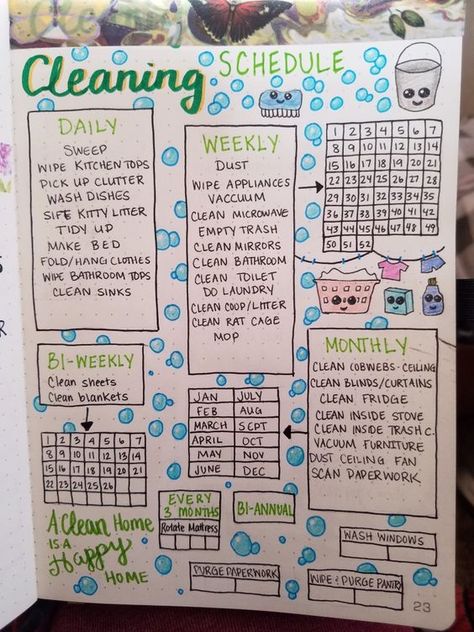 Cleaning
SCHEDULE
DAILY
SWEEP
WIPE KITCHEN TOPS
PICK UP CLUTTER
WASH DISHES
SIFE KITTY LITER
TIDY UP
MAKE BED
FOLD/HANG CLOTHES
WIPE BATHROOM TOPS
CLEAN SINKS
WEEKLY
DUST
WIPE APPLIANCES
VACCUUM
CLEAN MICROWAVE
EMPTY TRASH
CLEAN MIRRORS
CLEAN BATHROOM
CLEAN TOILET
DO LAUNDRY
CLEAN COOP/LITTER
CLEAN RAT CAGE
MOP
1 2 3 4 5 6 7
8 9 10 11 12 13 14
15 16 17 18 19 20 21
22 23 24 25 26 27 28
29 30 31 32 33 34 35
36 37 38 39 40 41 42
43 44 45 46 47 48 49
50 51 52
BI-WEEKLY
Clean sheets
Clean blankets
1 2 3 4 5 6 7
8 9 10 11 12 13 14
15 16 17 18 19 20 21
22 23 24 25 26
JAN JULY
FEB AUG
MARCH SEPT
APRIL OCT
MAY NOV
JUNE DEC
MONTHLY
CLEAN COBWEBS-CEILING
CLEAN BLINDS/CURTAINS
CLEAN FRIDGE
CLEAN INSIDE STOVE
CLEAN INSIDE TRASH C.
VACUUM FURNITURE
DUST CEILING FAN
SCAN PAPERWORK
A Clean Home
IS A
Happy
HOME
EVERY
3 MONTHS
Rotate Mattress
BI-ANNUAL
WASH WINDOWS
PURGE PAPERWORK
WIPE & PURGE PANTRY
23